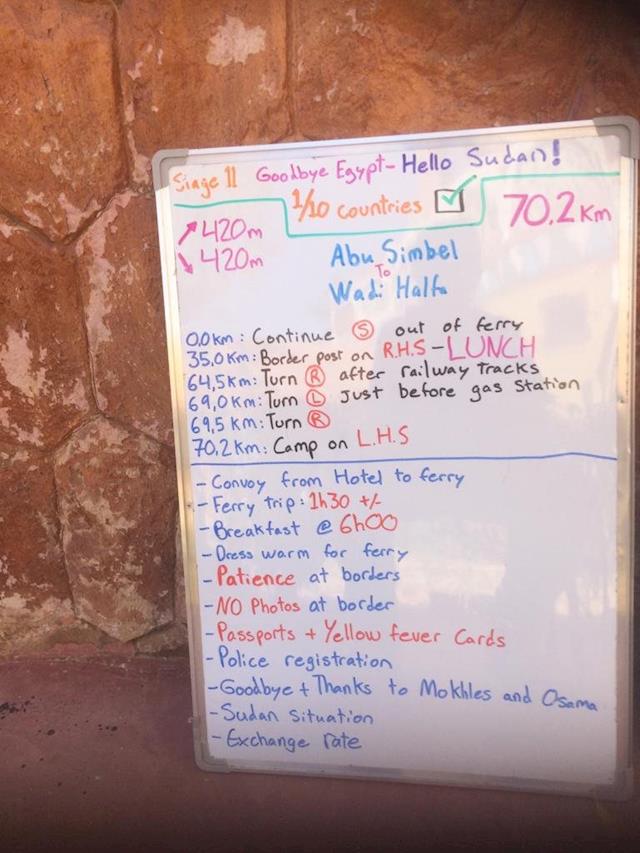 Stage 11 Goodbye Egypt - Hello Sudan!
1/10 countries
70.2 Km
↗ 420m
↘ 420m
Abu Simbel
To
Wadi Halfa
0.0km: Continue Ⓢ out of ferry
35,0Km: Border post on R.H.S - LUNCH
64,5km: Turn Ⓡ after railway tracks
69,0km: Turn Ⓛ just before gas station
69,5 km: Turn Ⓡ
70.2 Km: Camp on L.H.S
- Convoy from Hotel to ferry
- Ferry trip: 1h30 +/-
- Breakfast @ 6h00
- Dress warm for ferry
- Patience at borders
- NO Photos at border
- Passports + Yellow fever Cards
- Police registration
- Goodbye + Thanks to Mokhles and Osama
- Sudan Situation
- Exchange rate